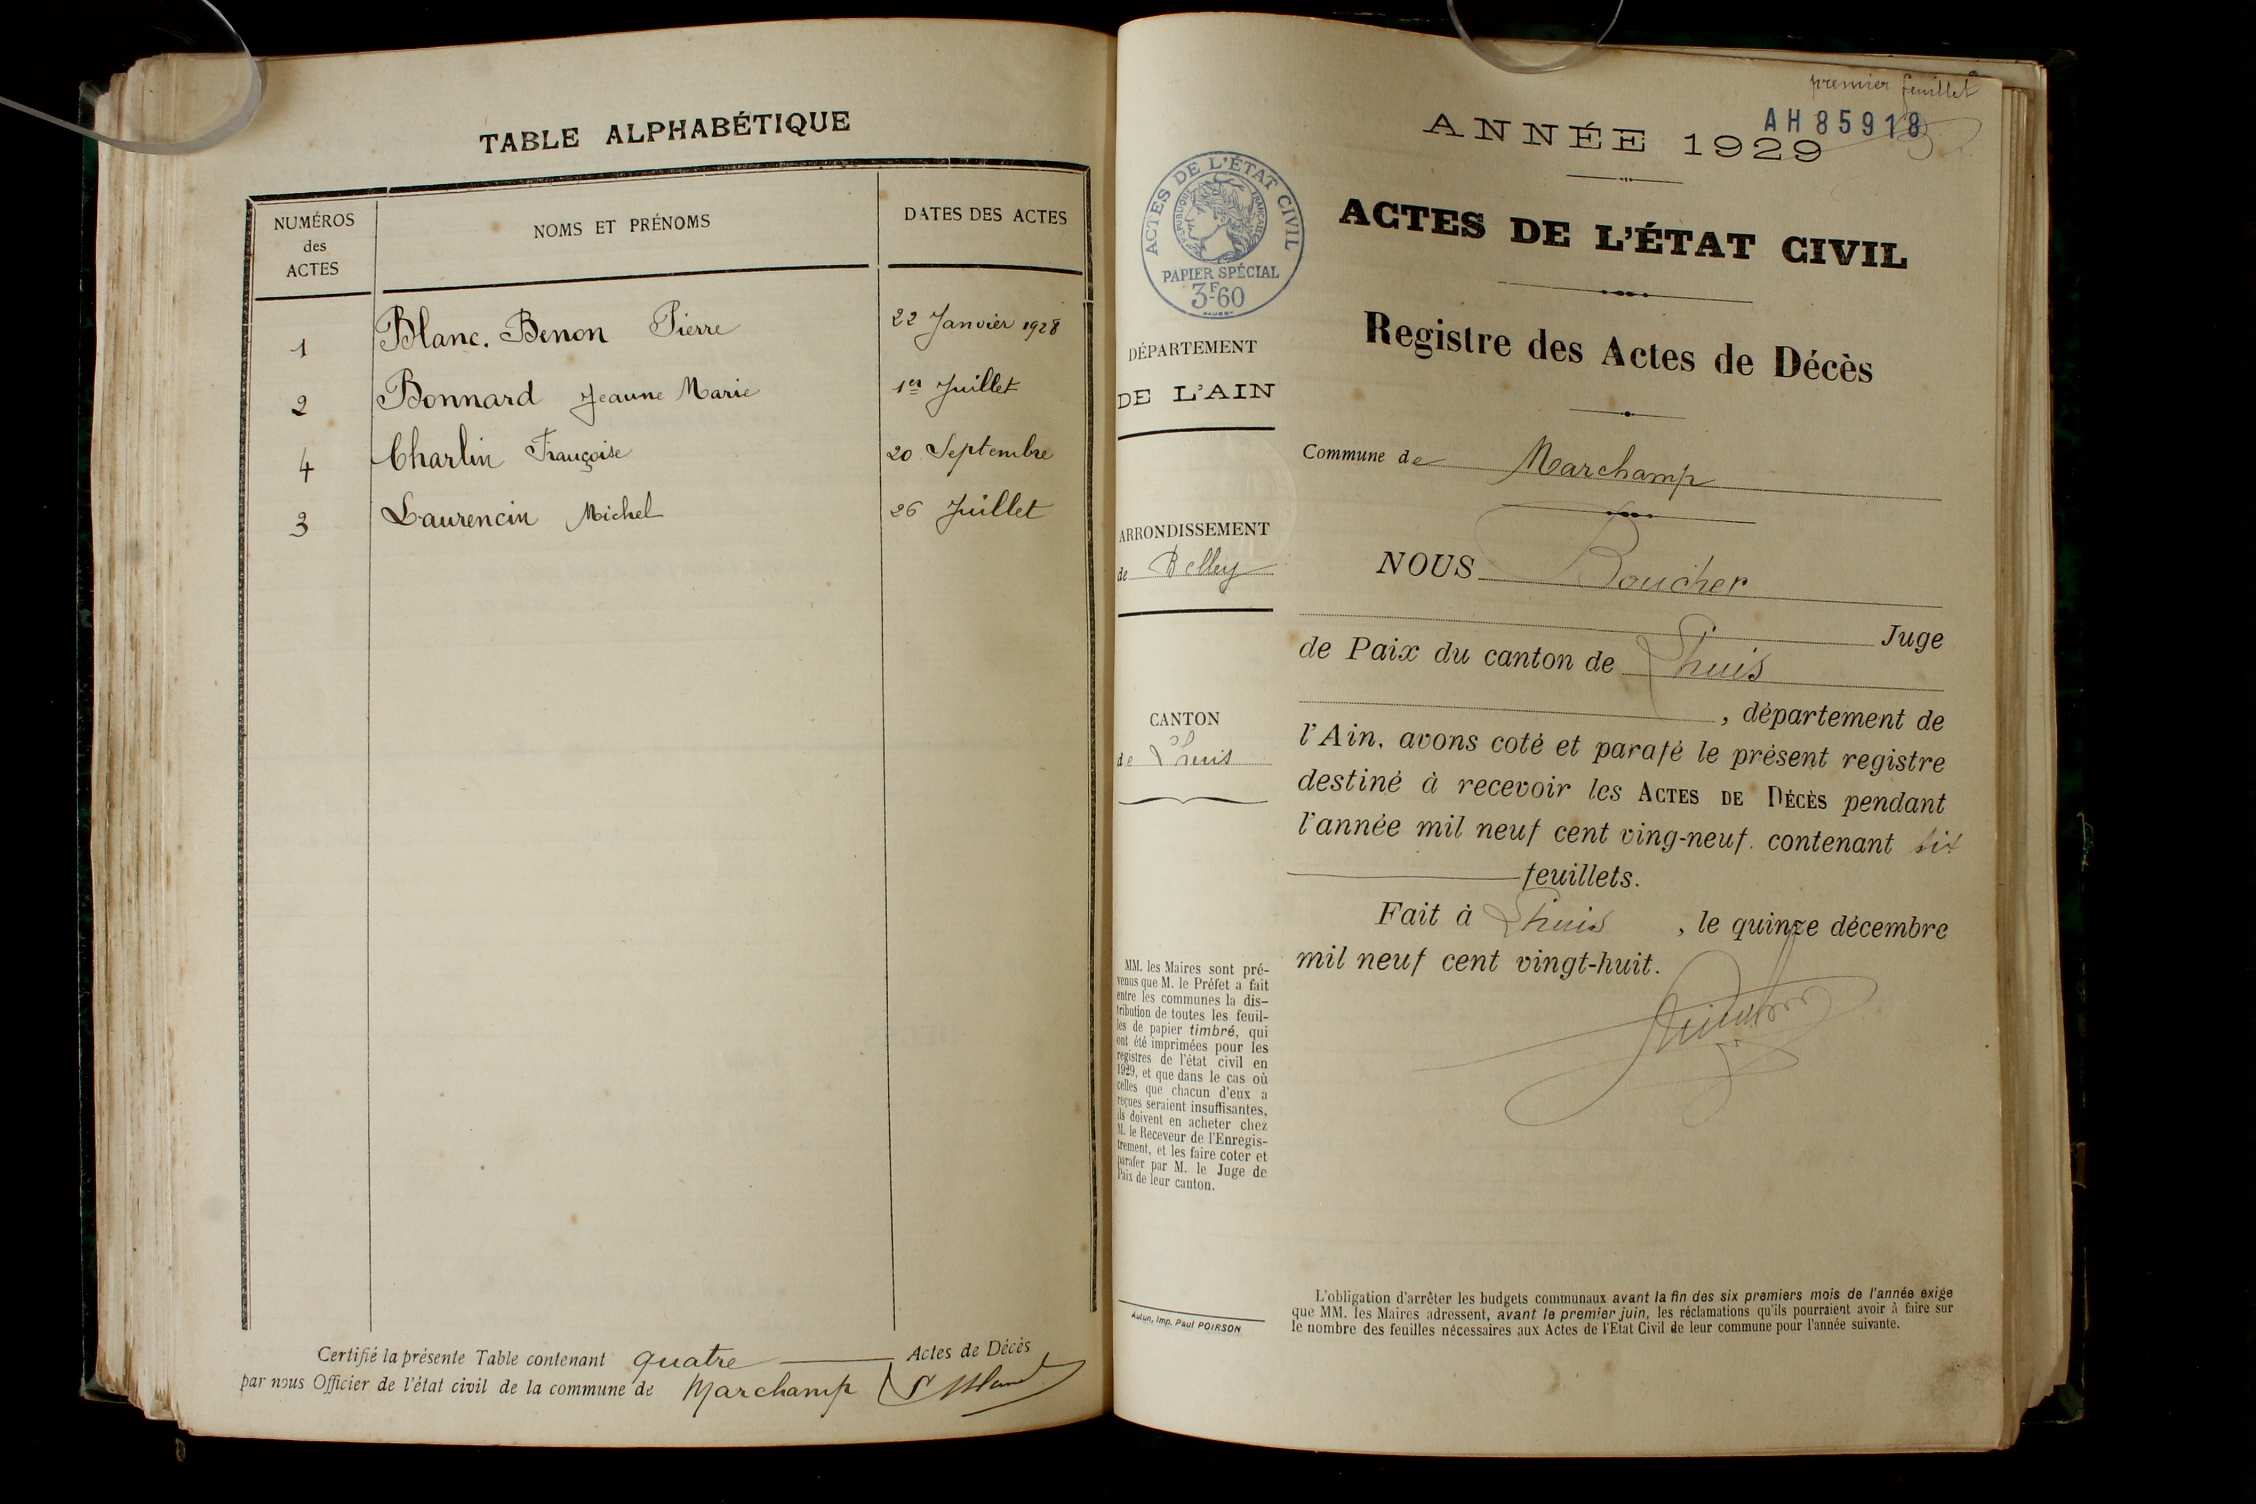 TABLE ALPHABÉTIQUE
NUMÉROS
des
ACTES
NOMS ET PRÉNOMS
DATES DES ACTES
1 Blanc. Benon Pierre 22 Janvier 1928
2 Bonnard Jeanne Marie 1er Juillet
4 Charlin Françoise 20 Septembre
3 Laurencin Michel 26 Juillet
Certifié la présente Table contenant quatre Actes de Décès
par nous Officier de l'état civil de la commune de Marchamp
premier feuillet
AH 85918
ANNÉE 1929
ACTES DE L'ÉTAT CIVIL
RÉPUBLIQUE FRANÇAISE
PAPIER SPÉCIAL
3F60
ACTES DE L'ÉTAT CIVIL
Registre des Actes de Décès
DÉPARTEMENT
DE L'AIN
Commune de Marchamp
ARRONDISSEMENT
de Belley
NOUS Boucher
Juge
de Paix du canton de Lhuis
, département de
l'Ain, avons coté et parafé le présent registre
destiné à recevoir les ACTES DE DÉCÈS pendant
l'année mil neuf cent ving-neuf. contenant six
feuillets.
Fait à Lhuis , le quinze décembre
mil neuf cent vingt-huit.
CANTON
de Lhuis
MM. les Maires sont pré-
venus que M. le Préfet a fait
entre les communes la dis-
tribution de toutes les feuil-
les de papier timbré, qui
ont été imprimées pour les
registres de l'état civil en
1929, et que dans le cas où
celles que chacun d'eux a
reçues seraient insuffisantes,
ils doivent en acheter chez
M. le Receveur de l'Enregis-
trement, et les faire coter et
parafer par M. le Juge de
Paix de leur canton.
Autun, Imp. Paul POIRSON
L'obligation d'arrêter les budgets communaux avant la fin des six premiers mois de l'année exige
que MM. les Maires adressent, avant le premier juin, les réclamations qu'ils pourraient avoir à faire sur
le nombre des feuilles nécessaires aux Actes de l'Etat Civil de leur commune pour l'année suivante.